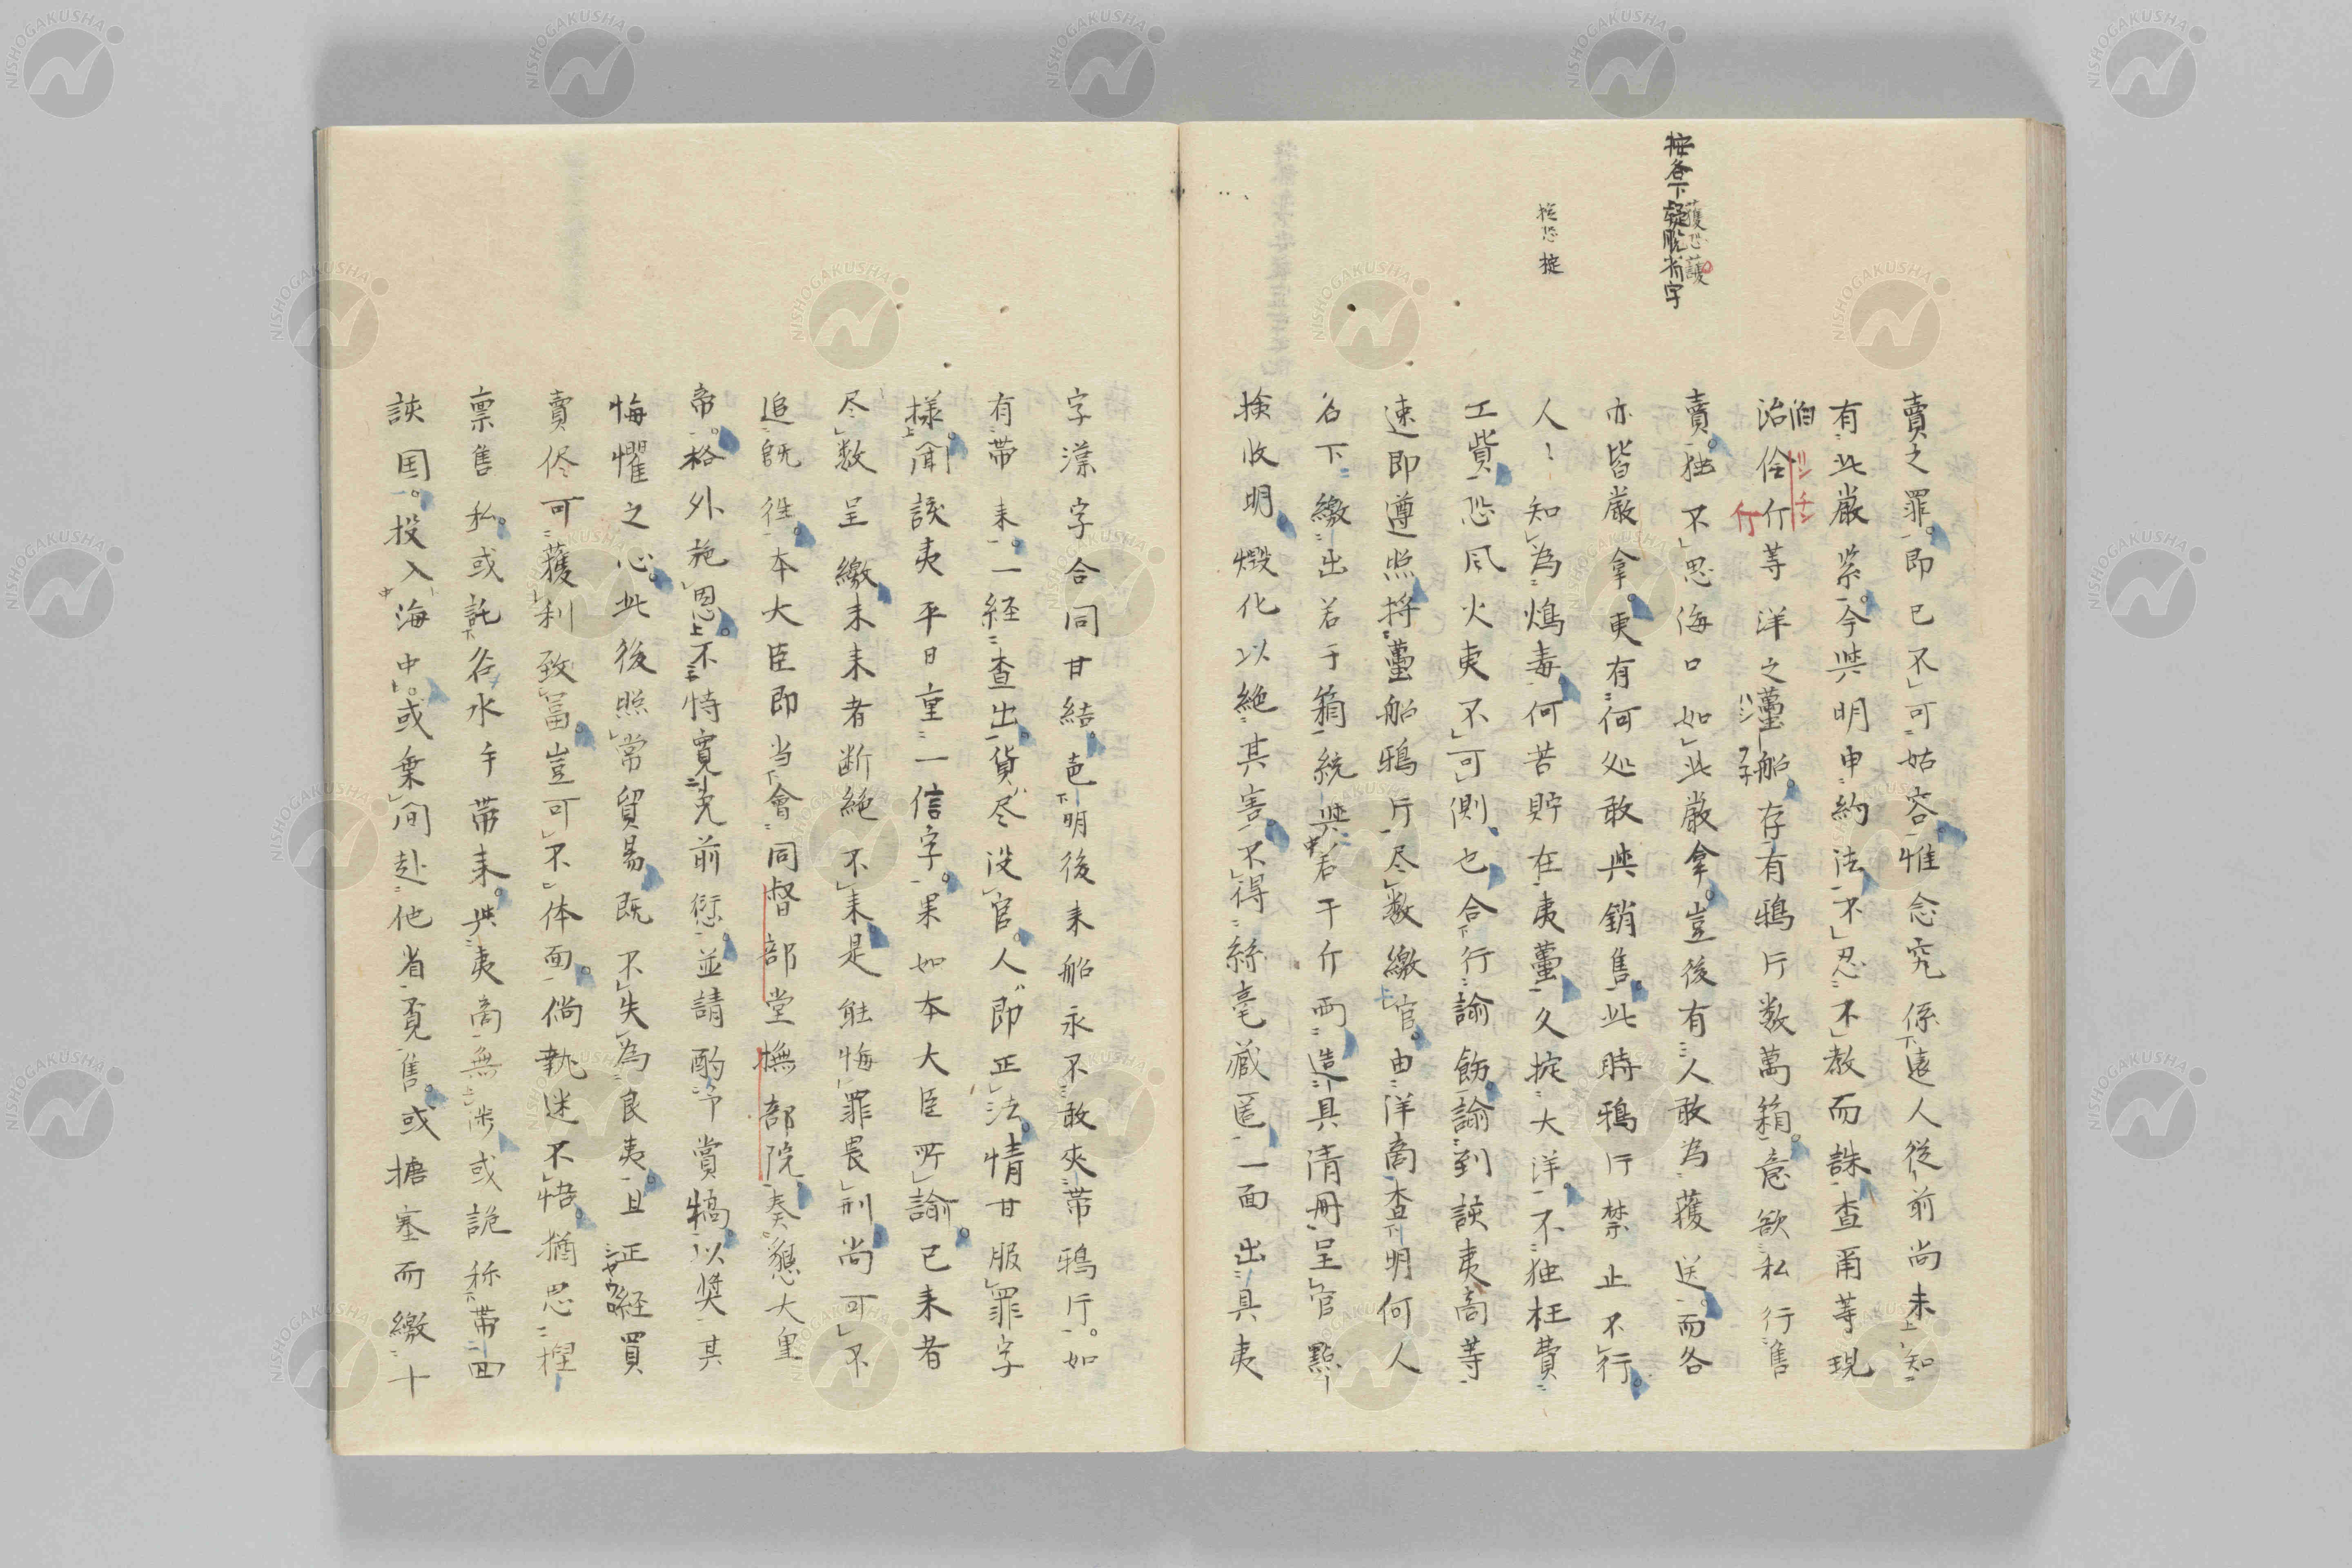 按各下疑脱省字
獲恐護
掟恐掟
賣之罪即已不可姑容惟念究係遠人從前尚未知
有此嚴禁今與明申約法不忍不教而誅查甭等現
泊伶仃等洋之躉船存有鴉片数萬箱意欲私行售
賣独不思海口如此嚴拿豈後有人敢為護送而各
亦皆嚴拿更有何処敢與銷售此時鴉片禁止不行
人〻知為鴆毒何苦貯在夷躉久掟大洋不独枉費
工貲恐风火夷不可側也合行諭飭諭到該夷商等
速即遵照将躉船鴉片尽数繳官由洋商查明何人
名下繳出若干箱統與若干斤両造具清冊呈官點
撿收明燬化以絶其害不得絲毫蔵匿一面出具夷
字漢字合同甘結
明後来船永不敢夾帯鴉片如
有帯来一経查出貨尽没官人即正法情甘服罪字
様聞該夷平日重一信字果如本大臣所諭已来者
尽数呈繳未来者断絶不来是能悔罪畏刑尚可不
追既徃本大臣即当會同督部堂撫部院奏懇大皇
帝格外施恩不特寛免前愆並請酌予賞犒以奨其
悔懼之心此後照常貿易既不失為良夷且正経買
賣侭可獲利致冨豈可不体面倘執迷不悟猶思捏
禀售私或託名水手帯来與夷商無渉或詭称帯回
該国投入海中或棄間赴他省覔售或搪塞而繳十
NISHOGAKUSHA